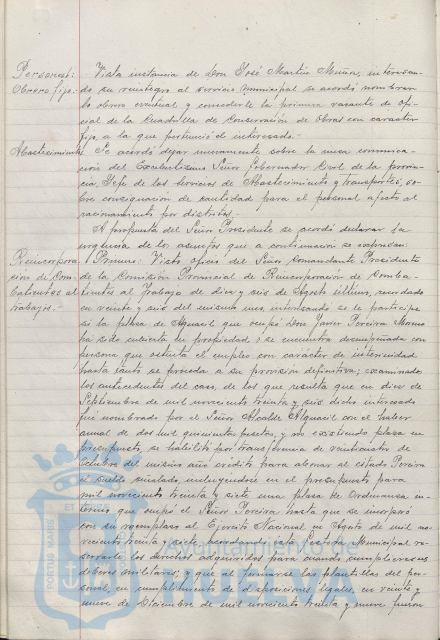 Personal: Vista instancia de Don José Martín Muñoz, interesan-
Obrero fijo.- do su reintegro al servicio municipal se acordó nombrar-
lo obrero eventual y concederle la primera vacante de ofi-
cial de la Cuadrilla de Conservación de Obras con carácter
fijo, a la que perteneció el interesado.-
Abastecimiento Se acordó dejar nuevamente sobre la mesa comunica-
ción del Excelentísimo Señor Gobernador Civil de la provin-
cia, Jefe de los servicios de Abastecimiento y transportes, so-
bre consignación de cantidad para el personal afecto al
racionamiento por distritos.-
A propuesta del Señor Presidente se acordó declarar la
urgencia de los asuntos que a continuación se expresan:
Reincorpora- Primero: Visto oficio del Señor Comandante Presidente
ción de Com- de la Comisión Provincial de Reincorporación de Comba-
batientes al tientes al Trabajo de diez y seis de Agosto último,
trabajo.- en veinte y seis del mismo mes, interesando se le participe
si la plaza de Alguacil que ocupó Don Javier Pereira
ha sido cubierta en propiedad, o se encuentra desempeñada con
persona que ostenta el empleo con carácter de interinidad
hasta tanto se proceda a su provisión definitiva; examinados
los antecedentes del caso, de los que resulta que en diez de
Septiembre de mil novecientos treinta y seis dicho interesado
fué nombrado por el Señor Alcalde Alguacil con el haber
anual de dos mil quinientas pesetas, y no existiendo plaza en
presupuesto, se habilitó por transferencia de
Octubre del mismo año crédito para abonar al citado Pereira
el sueldo señalado, incluyéndose en el presupuesto para
mil novecientos treinta y siete una plaza de Ordenanza in-
terino que ocupó el Señor Pereira hasta que se incorporó
con su reemplazo al Ejército Nacional en Agosto de mil no-
vecientos treinta y siete, acordando esta Gestora Municipal re-
servarle los derechos adquiridos para cuando cumpliere sus
deberes militares; que al formarse las plantillas del per-
sonal, en cumplimiento de disposiciones legales, en veinte y
nueve de Diciembre de mil novecientos treinta y nueve fueron
PORTUS MARIS ET
Ayuntamiento de
HUELVA